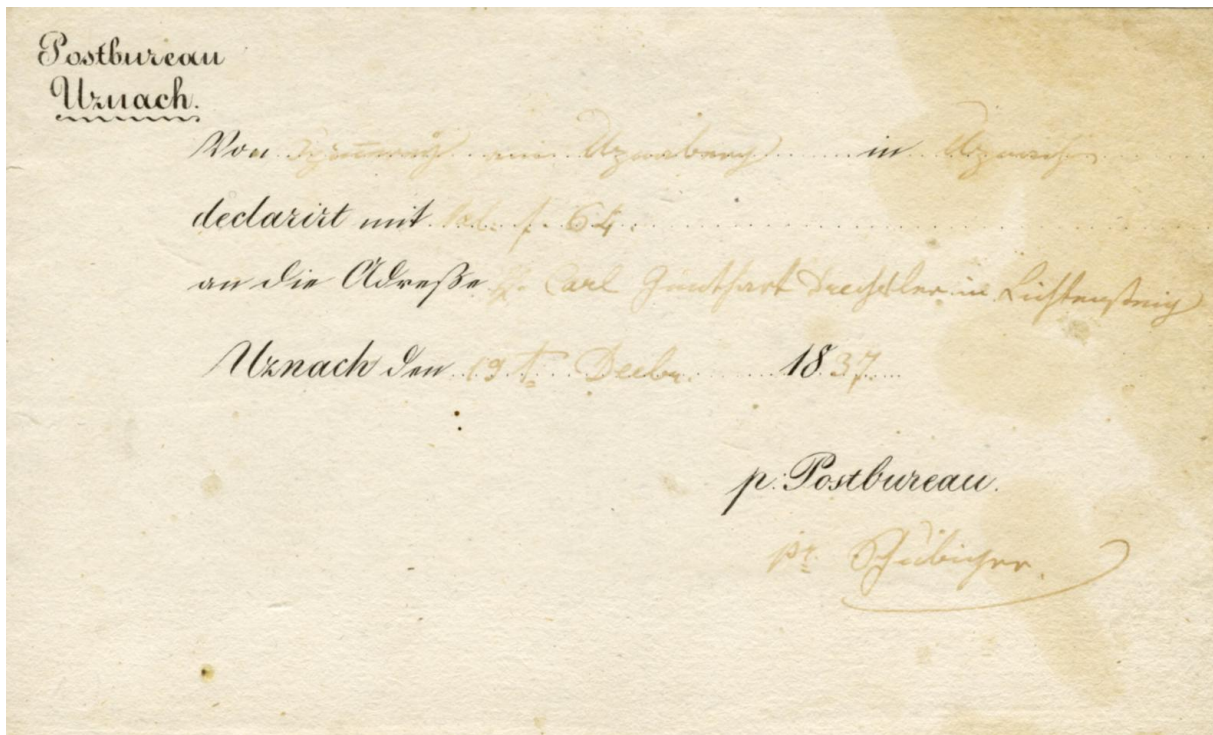 Postbureau
Uznach.
Von in Uznach
declarirt mit f. 64.
an die Adreße Carl Drechsler in Lichtensteig
Uznach den 19t. Decbr. 1837.
p: Postbureau.
pr. Schubiger.